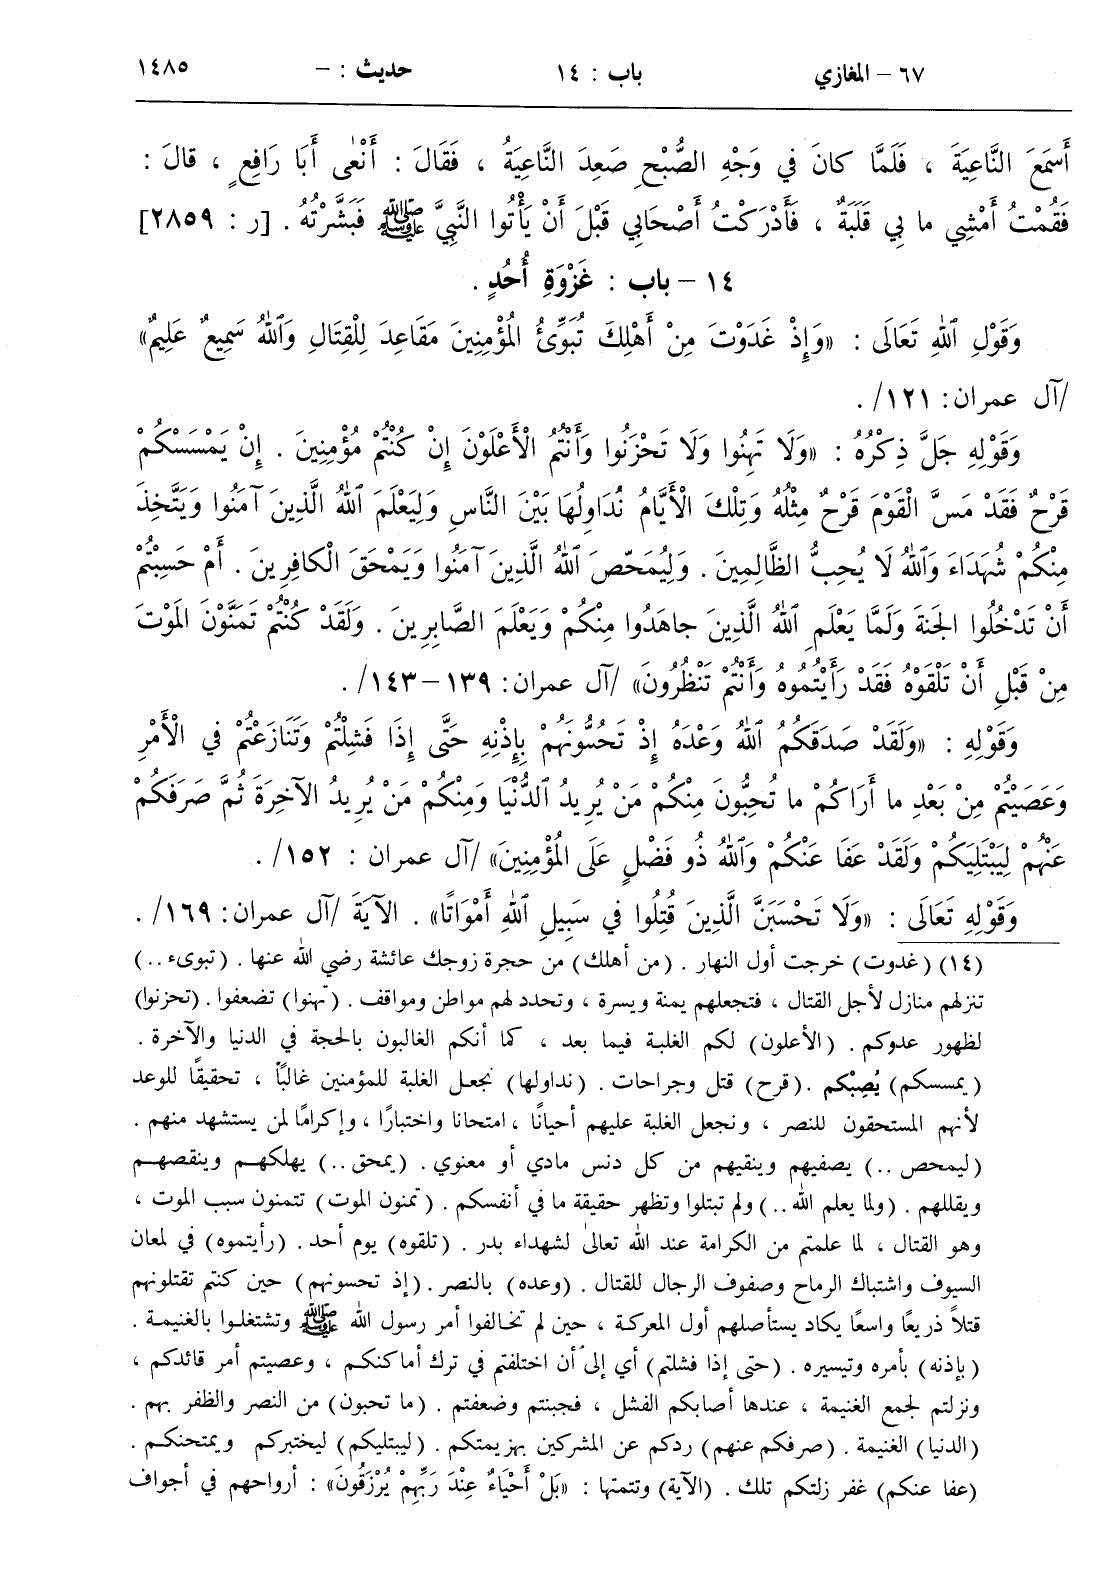 ٦٧ – المغازي باب : ١٤ حديث : – ١٤٨٥
أَسْمَعَ النَّاعِيَةَ ، فَلَمَّا كانَ في وَجْهِ الصُّبْحِ صَعِدَ النَّاعِيَةُ ، فَقَالَ : أَنْعٰى أَبَا رَافِعٍ ، قالَ :
فَقُمْتُ أَمْشِي ما بِي قَلَبَةٌ ، فَأَدْرَكْتُ أَصْحَابِي قَبْلَ أَنْ يَأْتُوا النَّبِيَّ ﷺ فَبَشَّرْتُهُ . [ر : ٢٨٥٩]
١٤ – باب : غَزْوَةِ أُحُدٍ .
وَقَوْلِ اللهِ تَعَالَى : «وَإِذْ غَدَوْتَ مِنْ أَهْلِكَ تُبَوِّئُ الْمُؤْمِنِينَ مَقَاعِدَ لِلْقِتَالِ وَاللهُ سَمِيعٌ عَلِيمٌ»
/آل عمران: ١٢١/ .
وَقَوْلِهِ جَلَّ ذِكْرُهُ : «وَلَا تَهِنُوا وَلَا تَحْزَنُوا وَأَنْتُمُ الْأَعْلَوْنَ إِنْ كُنْتُمْ مُؤْمِنِينَ . إِنْ يَمْسَسْكُمْ
قَرْحٌ فَقَدْ مَسَّ الْقَوْمَ قَرْحٌ مِثْلُهُ وَتِلْكَ الْأَيَّامُ نُدَاوِلُهَا بَيْنَ النَّاسِ وَلِيَعْلَمَ اللهُ الَّذِينَ آمَنُوا وَيَتَّخِذَ
مِنْكُمْ شُهَدَاءَ وَاللهُ لَا يُحِبُّ الظَّالِمِينَ . وَلِيُمَحِّصَ اللهُ الَّذِينَ آمَنُوا وَيَمْحَقَ الْكافِرِينَ . أَمْ حَسِبْتُمْ
أَنْ تَدْخُلُوا الجَنةَ وَلَمَّا يَعْلَمِ اللهُ الَّذِينَ جاهَدُوا مِنْكُمْ وَيَعْلَمَ الصَّابِرِينَ . وَلَقَدْ كُنْتُمْ تَمَنَّوْنَ المَوْتَ
مِنْ قَبْلِ أَنْ تَلْقَوْهُ فَقَدْ رَأَيْتُمُوهُ وَأَنْتُمْ تَنْظُرُونَ» /آل عمران: ١٣٩–١٤٣/ .
وَقَوْلِهِ : «وَلَقَدْ صَدَقَكُمُ اللهُ وَعْدَهُ إِذْ تَحُسُّونَهُمْ بِإِذْنِهِ حَتَّى إِذَا فَشِلْتُمْ وَتَنَازَعْتُمْ في الْأَمْرِ
وَعَصَيْتُمْ مِنْ بَعْدِ ما أَرَاكُمْ ما تُحِبُّونَ مِنْكُمْ مَنْ يُرِيدُ الدُّنْيَا وَمِنْكُمْ مَنْ يُرِيدُ الآخِرَةَ ثُمَّ صَرَفَكُمْ
عَنْهُمْ لِيَبْتَلِيَكُمْ وَلَقَدْ عَفَا عَنْكُمْ وَاللهُ ذُو فَضْلٍ عَلَى المُؤْمِنِينَ» /آل عمران : ١٥٢/ .
وَقَوْلِهِ تَعَالَى : «وَلَا تَحْسَبَنَّ الَّذِينَ قُتِلُوا في سَبِيلِ اللهِ أَمْوَاتًا» . الآيَةَ /آل عمران: ١٦٩/ .
(١٤) (غدوت) خرجت أول النهار . (من أهلك) من حجرة زوجك عائشة رضي الله عنها . (تبوىء ..)
تنزلهم منازل لأجل القتال ، فتجعلهم يمنة ويسرة ، وتحدد لهم مواطن ومواقف . (تهنوا) تضعفوا . (تحزنوا)
لظهور عدوكم . (الأعلون) لكم الغلبة فيما بعد ، كما أنكم الغالبون بالحجة في الدنيا والآخرة .
(يمسسكم) يُصِبْكم . (قرح) قتل وجراحات . (نداولها) نجعل الغلبة للمؤمنين غالبًا ، تحقيقًا للوعد
لأنهم المستحقون للنصر ، ونجعل الغلبة عليهم أحيانًا ، امتحانا واختبارًا ، وإكرامًا لمن يستشهد منهم .
(ليمحص ..) يصفيهم وينقيهم من كل دنس مادي أو معنوي . (يمحق ..) يهلكهم وينقصهم
ويقللهم . (ولما يعلم الله ..) ولم تبتلوا وتظهر حقيقة ما في أنفسكم . (تمنون الموت) تتمنون سبب الموت ،
وهو القتال ، لما علمتم من الكرامة عند الله تعالىٰ لشهداء بدر . (تلقوه) يوم أحد . (رأيتموه) في لمعان
السيوف واشتباك الرماح وصفوف الرجال للقتال . (وعده) بالنصر . (إذ تحسونهم) حين كنتم تقتلونهم
قتلاً ذريعًا واسعًا يكاد يستأصلهم أول المعركة ، حين لم تخالفوا أمر رسول الله ﷺ وتشتغلوا بالغنيمة .
(بإذنه) بأمره وتيسيره . (حتى إذا فشلتم) أي إلى أن اختلفتم في ترك أماكنكم ، وعصيتم أمر قائدكم ،
ونزلتم لجمع الغنيمة ، عندها أصابكم الفشل ، فجبنتم وضعفتم . (ما تحبون) من النصر والظفر بهم .
(الدنيا) الغنيمة . (صرفكم عنهم) ردكم عن المشركين بهزيمتكم . (ليبتليكم) ليختبركم ويمتحنكم .
(عفا عنكم) غفر زلتكم تلك . (الآية) وتتمتها : «بَلْ أَحْيَاءٌ عِنْدَ رَبِّهِمْ يُرْزَقُونَ» : أرواحهم في أجواف